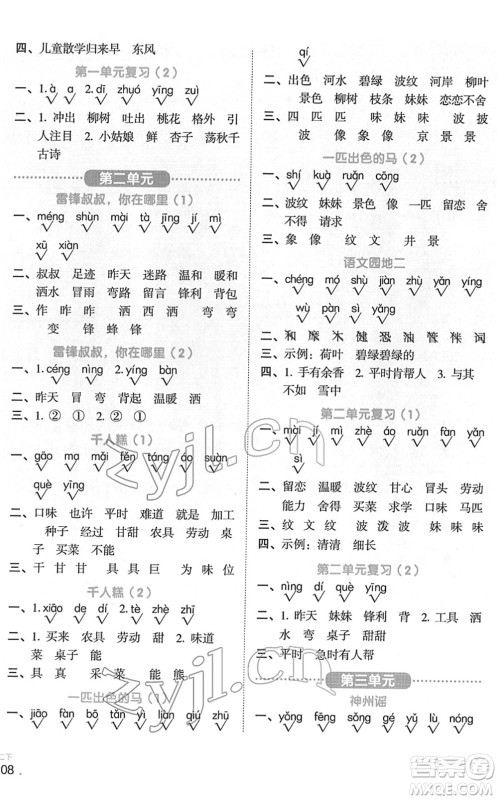 四、儿童散学归来早 东风
第一单元复习（2）
一、1. ā a 2. dī zhuó yīng zuì
二、1. 冲出 柳树 吐出 桃花 格外 引
人注目 2. 小姑娘 鲜 杏子 荡秋千
古诗
第二单元
雷锋叔叔，你在哪里（1）
一、méng shùn mài tà jīng jí mì
xū xiàn
二、叔叔 足迹 昨天 迷路 温和 暖和
洒水 冒雨 弯路 留意 锋利 背包
三、作 昨 昨 洒 洒 洒 弯 弯
变 锋 锋 蜂
雷锋叔叔，你在哪里（2）
一、1. céng ní 2. níng bāng
二、昨天 冒 弯 背出 温暖 洒
三、1. ② ① 2. ① ②
千人糕（1）
一、gāo ma mǎi fěn táng áo suàn
què wèi
二、口味 也许 平时 或者 就是 加工
种子 经过 甘甜 农具 劳动 甜点
子 买菜 不能
三、具 甘 甘 具 具 豆 为 味 位
千人糕（2）
一、1. xiāo de dí 2. dí de
二、1. 买来 农具 劳动 甜 2. 味道
菜 菜 桌子 能
三、具 真 采 菜 能 熊
一匹出色的马（1）
一、jiāo fàn bō tián liàn qiú zhú
qí
二、出色 河水 碧绿 波纹 花纹 风景
景色 柳树 枝条 妹妹 恋恋不舍
三、四 匹 匹 像 像 波 波 披
象 像 京 景 景
一匹出色的马（2）
一、shí kuà ruǎn cōng
二、波纹 妹妹 景色 像 一匹 留恋 舍
不得 请求
三、象 像 纹 文 井 景
语文园地二
一、chéng mó shī fú yóu pí mào
wù pàn sù yóu
二、和 厨 魔 沐 猩 滔 管 锥 秣
三、示例：荷叶 碧绿碧绿的
四、1. 手有余香 2. 平时肯帮人 3. 与其
不如 雪中
第二单元复习（1）
一、mài jí mò dé áo ruǎn fàn yǎng
sì
二、留恋 温暖 波纹 甘心 冒头 劳动
能力 昨日 背包 景色 妹妹
三、纹 文 纹 波 波 妹 味 味
四、示例：清清 细长
第二单元复习（2）
一、nìng dí què yīng
二、1. 昨天 妹妹 锋利 背 2. 工具 洒
水 景 桌子 甜甜
三、平时 急时有人帮
第三单元
神州谣
一、yǒng fēng sōng gé yì zhòng
二下
08